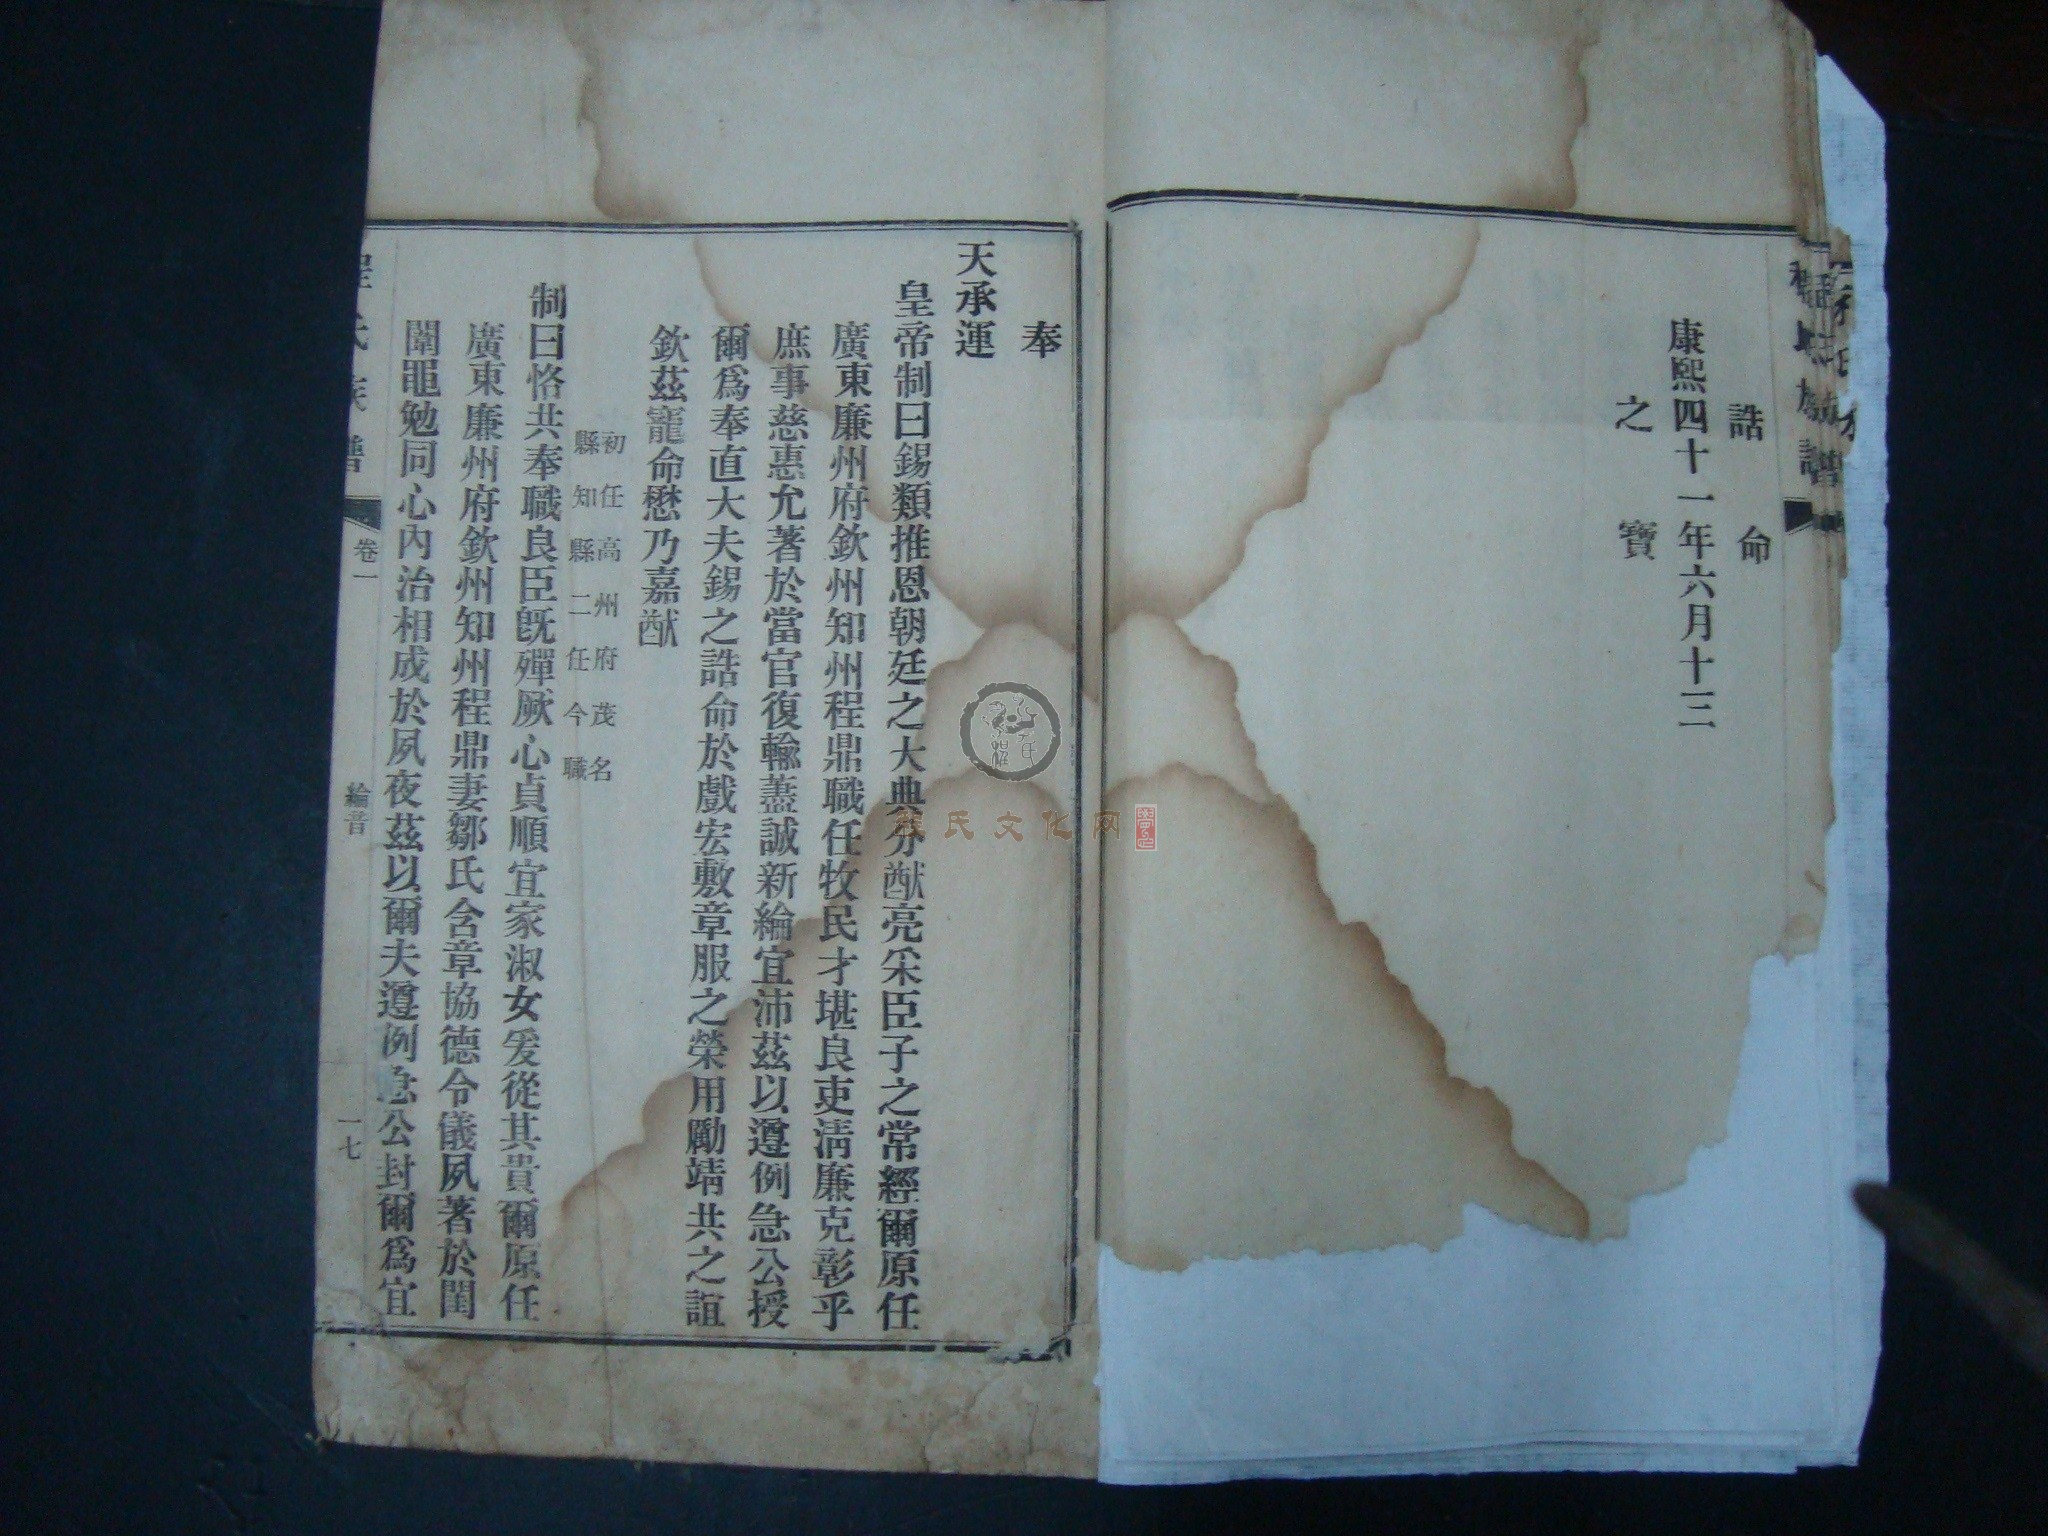 誥命
康熙四十一年六月十三
之寶
奉
天承運
皇帝制曰錫類推恩朝廷之大典分猷亮采臣子之常經爾原任
廣東廉州府欽州知州程鼎職任牧民才堪良吏淸廉克彰乎
庶事慈惠允著於當官復輸藎誠新綸宜沛茲以遵例急公授
爾爲奉直大夫錫之誥命於戲宏敷章服之榮用勵靖共之誼
欽茲寵命懋乃嘉猷
初任高州府茂名
縣知縣二任今職
制曰恪共奉職良臣旣殫厥心貞順宜家淑女爰從其貴爾原任
廣東廉州府欽州知州程鼎妻鄒氏含章協德令儀夙著於閨
闈黽勉同心內治相成於夙夜茲以爾夫遵例急公封爾爲宜
程氏族譜
卷一
綸音
一七
程氏文化网